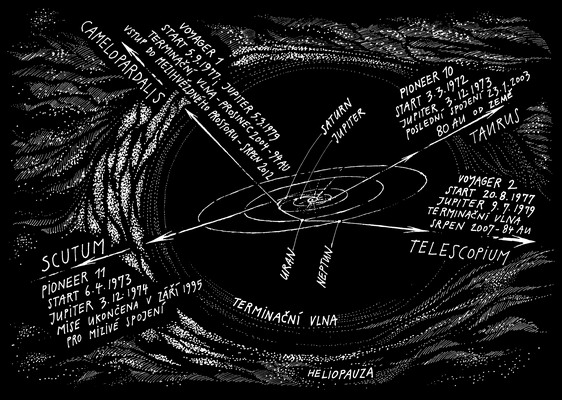 CAMELOPARDALIS
VOYAGER 1
START 5.9.1977, JUPITER 5.3.1979
TERMINAČNÍ VLNA - PROSINEC 2004 - 94 AU
VSTUP DO MEZIHVĚZDNÉHO PROSTORU - SRPEN 2012
SATURN
JUPITER
PIONEER 10
START 3.3.1972
JUPITER 3.12.1973
POSLEDNÍ SPOJENÍ 23.1.2003
80 AU OD ZEMĚ
TAURUS
VOYAGER 2
START 20.8.1977
JUPITER 9.7.1979
TERMINAČNÍ VLNA
SRPEN 2007-84 AU
TELESCOPIUM
SCUTUM
PIONEER 11
START 6.4.1973
JUPITER 3.12.1974
MISE UKONČENA V ZÁŘÍ 1995
PRO MIZIVÉ SPOJENÍ
URAN
NEPTUN
TERMINAČNÍ VLNA
HELIOPAUZA